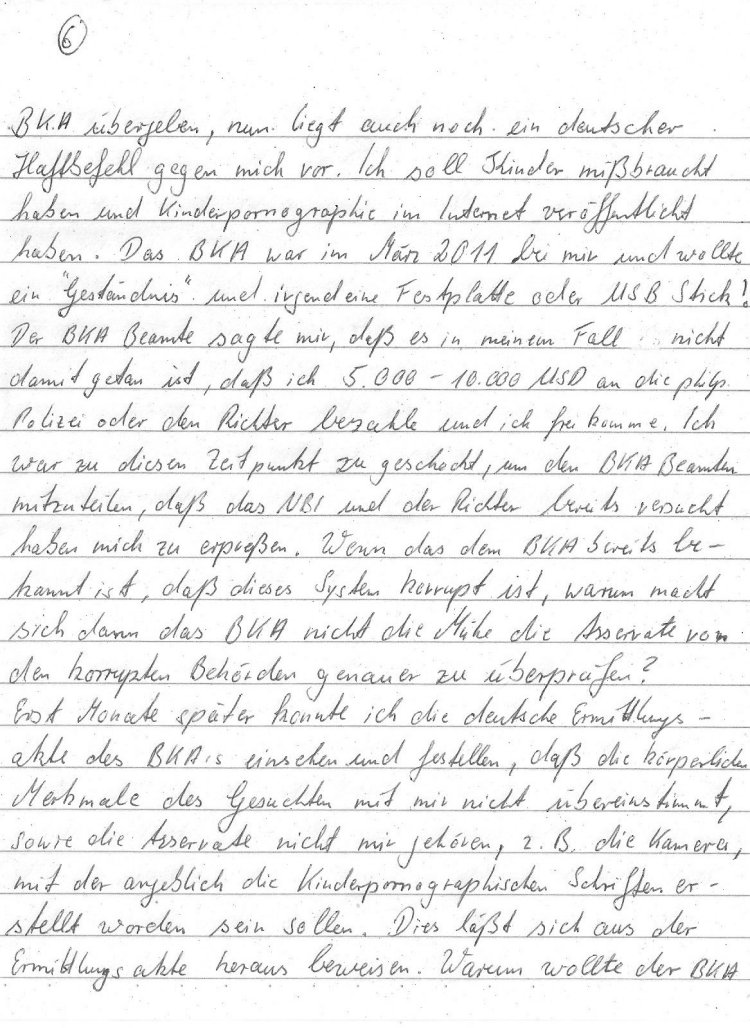 6
BKA übergeben, nun liegt auch noch ein deutscher
Haftbefehl gegen mich vor. Ich soll Kinder mißbraucht
haben und Kinderpornographie im Internet veröffentlicht
haben. Das BKA war im März 2011 bei mir und wollte
ein "Geständnis" und irgendeine Festplatte oder USB Stick!
Der BKA Beamte sagte mir, daß es in meinem Fall nicht
damit getan ist, daß ich 5.000 - 10.000 USD an die philp.
Polizei oder den Richter bezahle und ich frei komme. Ich
war zu diesen Zeitpunkt zu geschockt, um den BKA Beamten
mitzuteilen, daß das NBI und der Richter bereits versucht
haben mich zu erpreßen. Wenn das dem BKA bereits be-
kannt ist, daß dieses System korrupt ist, warum macht
sich dann das BKA nicht die Mühe die Asservate von
den korrupten Behörden genauer zu überprüfen?
Erst Monate später konnte ich die deutsche Ermittlungs-
akte des BKA's einsehen und festellen, daß die körperlichen
Merkmale des Gesuchten mit mir nicht übereinstimmt,
sowie die Asservate nicht mir gehören, z.B. die Kamera,
mit der angeblich die Kinderpornographischen Schriften er-
stellt worden sein sollen. Dies läßt sich aus der
Ermittlungsakte heraus beweisen. Warum wollte der BKA